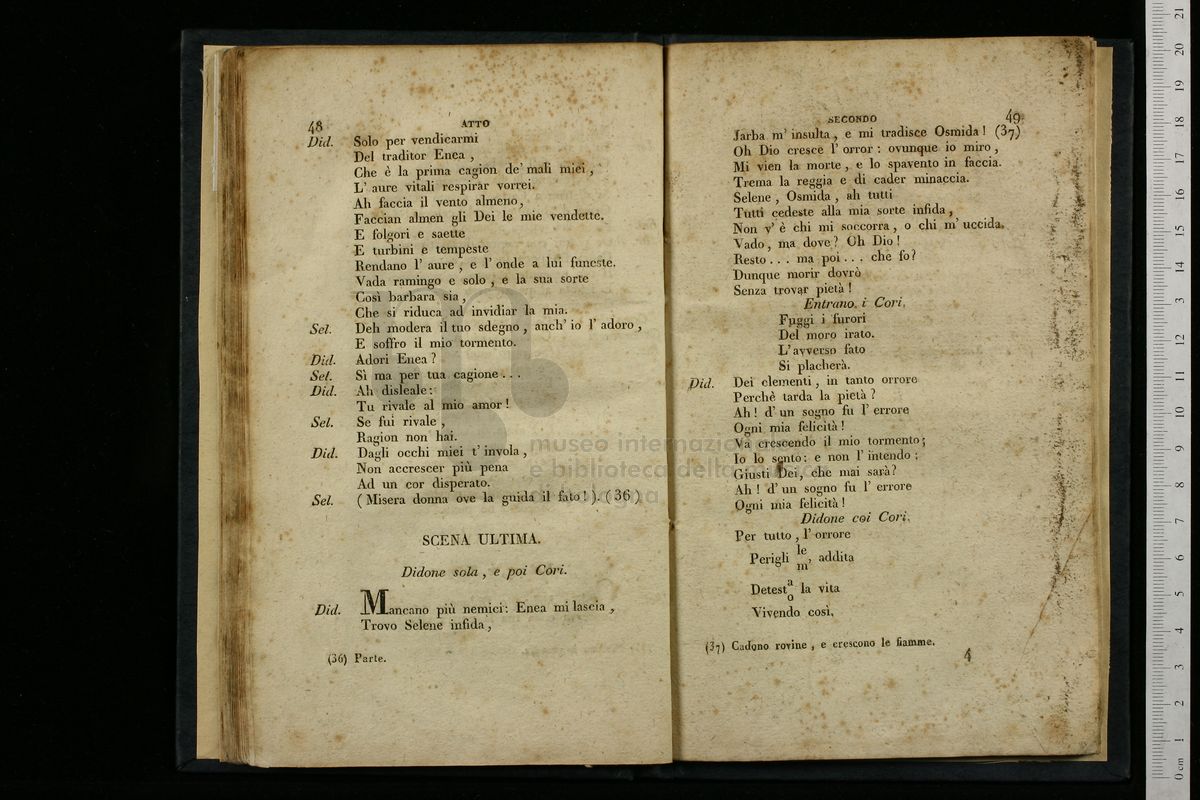 48
ATTO
Did. Solo per vendicarmi
Del traditor Enea ,
Che è la prima cagion de' mali miei ,
L' aure vitali respirar vorrei.
Ah faccia il vento almeno,
Faccian almen gli Dei le mie vendette.
E folgori e saette
E turbini e tempeste
Rendano l' aure , e l' onde a lui funeste.
Vada ramingo e solo , e la sua sorte
Così barbara sia ,
Che si riduca ad invidiar la mia.
Sel. Deh modera il tuo sdegno , anch' io l' adoro ,
E soffro il mio tormento.
Did. Adori Enea ?
Sel. Sì ma per tua cagione . . .
Did. Ah disleale :
Tu rivale al mio amor !
Sel. Se fui rivale ,
Ragion non hai.
Did. Dagli occhi miei t' invola ,
Non accrescer più pena
Ad un cor disperato.
Sel. ( Misera donna ove la guida il fato ! ). (36)
SCENA ULTIMA.
Didone sola , e poi Cori.
Did. Mancano più nemici : Enea mi lascia ,
Trovo Selene infida ,
(36) Parte.
SECONDO
49
Jarba m' insulta , e mi tradisce Osmida ! (37)
Oh Dio cresce l' orror : ovunque io miro ,
Mi vien la morte , e lo spavento in faccia.
Trema la reggia e di cader minaccia.
Selene , Osmida , ah tutti
Tutti cedeste alla mia sorte infida ,
Non v' è chi mi soccorra , o chi m' uccida.
Vado , ma dove ? Oh Dio !
Resto . . . ma poi . . . che fo ?
Dunque morir dovrò
Senza trovar pietà !
Entrano i Cori.
Fuggi i furori
Del moro irato.
L' avverso fato
Si placherà.
Did. Dei clementi , in tanto orrore
Perchè tarda la pietà ?
Ah ! d' un sogno fu l' errore
Ogni mia felicità !
Va crescendo il mio tormento ;
Io lo sento : e non l' intendo :
Giusti Dei , che mai sarà ?
Ah ! d' un sogno fu l' errore
Ogni mia felicità !
Didone coi Cori.
Per tutto , l' orrore
Perigli le/m', addita
Detest a/o la vita
Vivendo così.
(37) Cadono rovine , e crescono le fiamme.
4
museo internazio
e biblioteca della